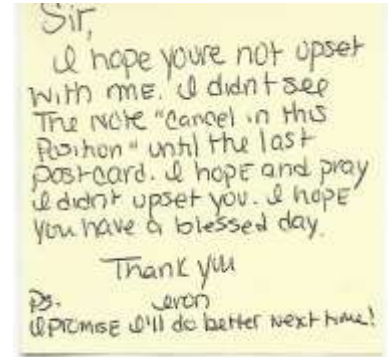 Sir,
I hope youre not upset
with me. I didnt see
The Note "Cancel in this
Position" until the last
postcard. I hope and pray
I didnt upset you. I hope
you have a blessed day.
Thank you
Ps.
I promise I'll do better next time!